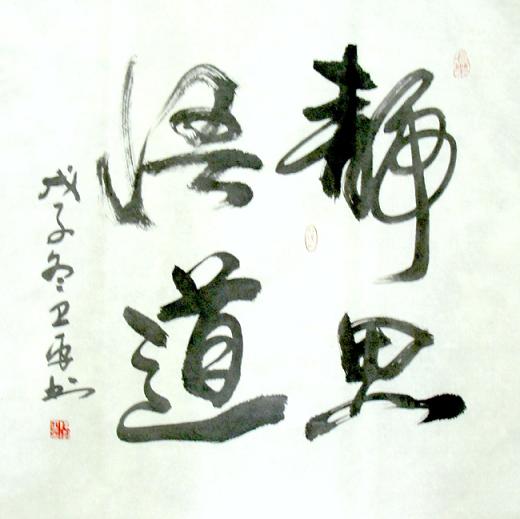 静思
悟道
戊子冬卫平书